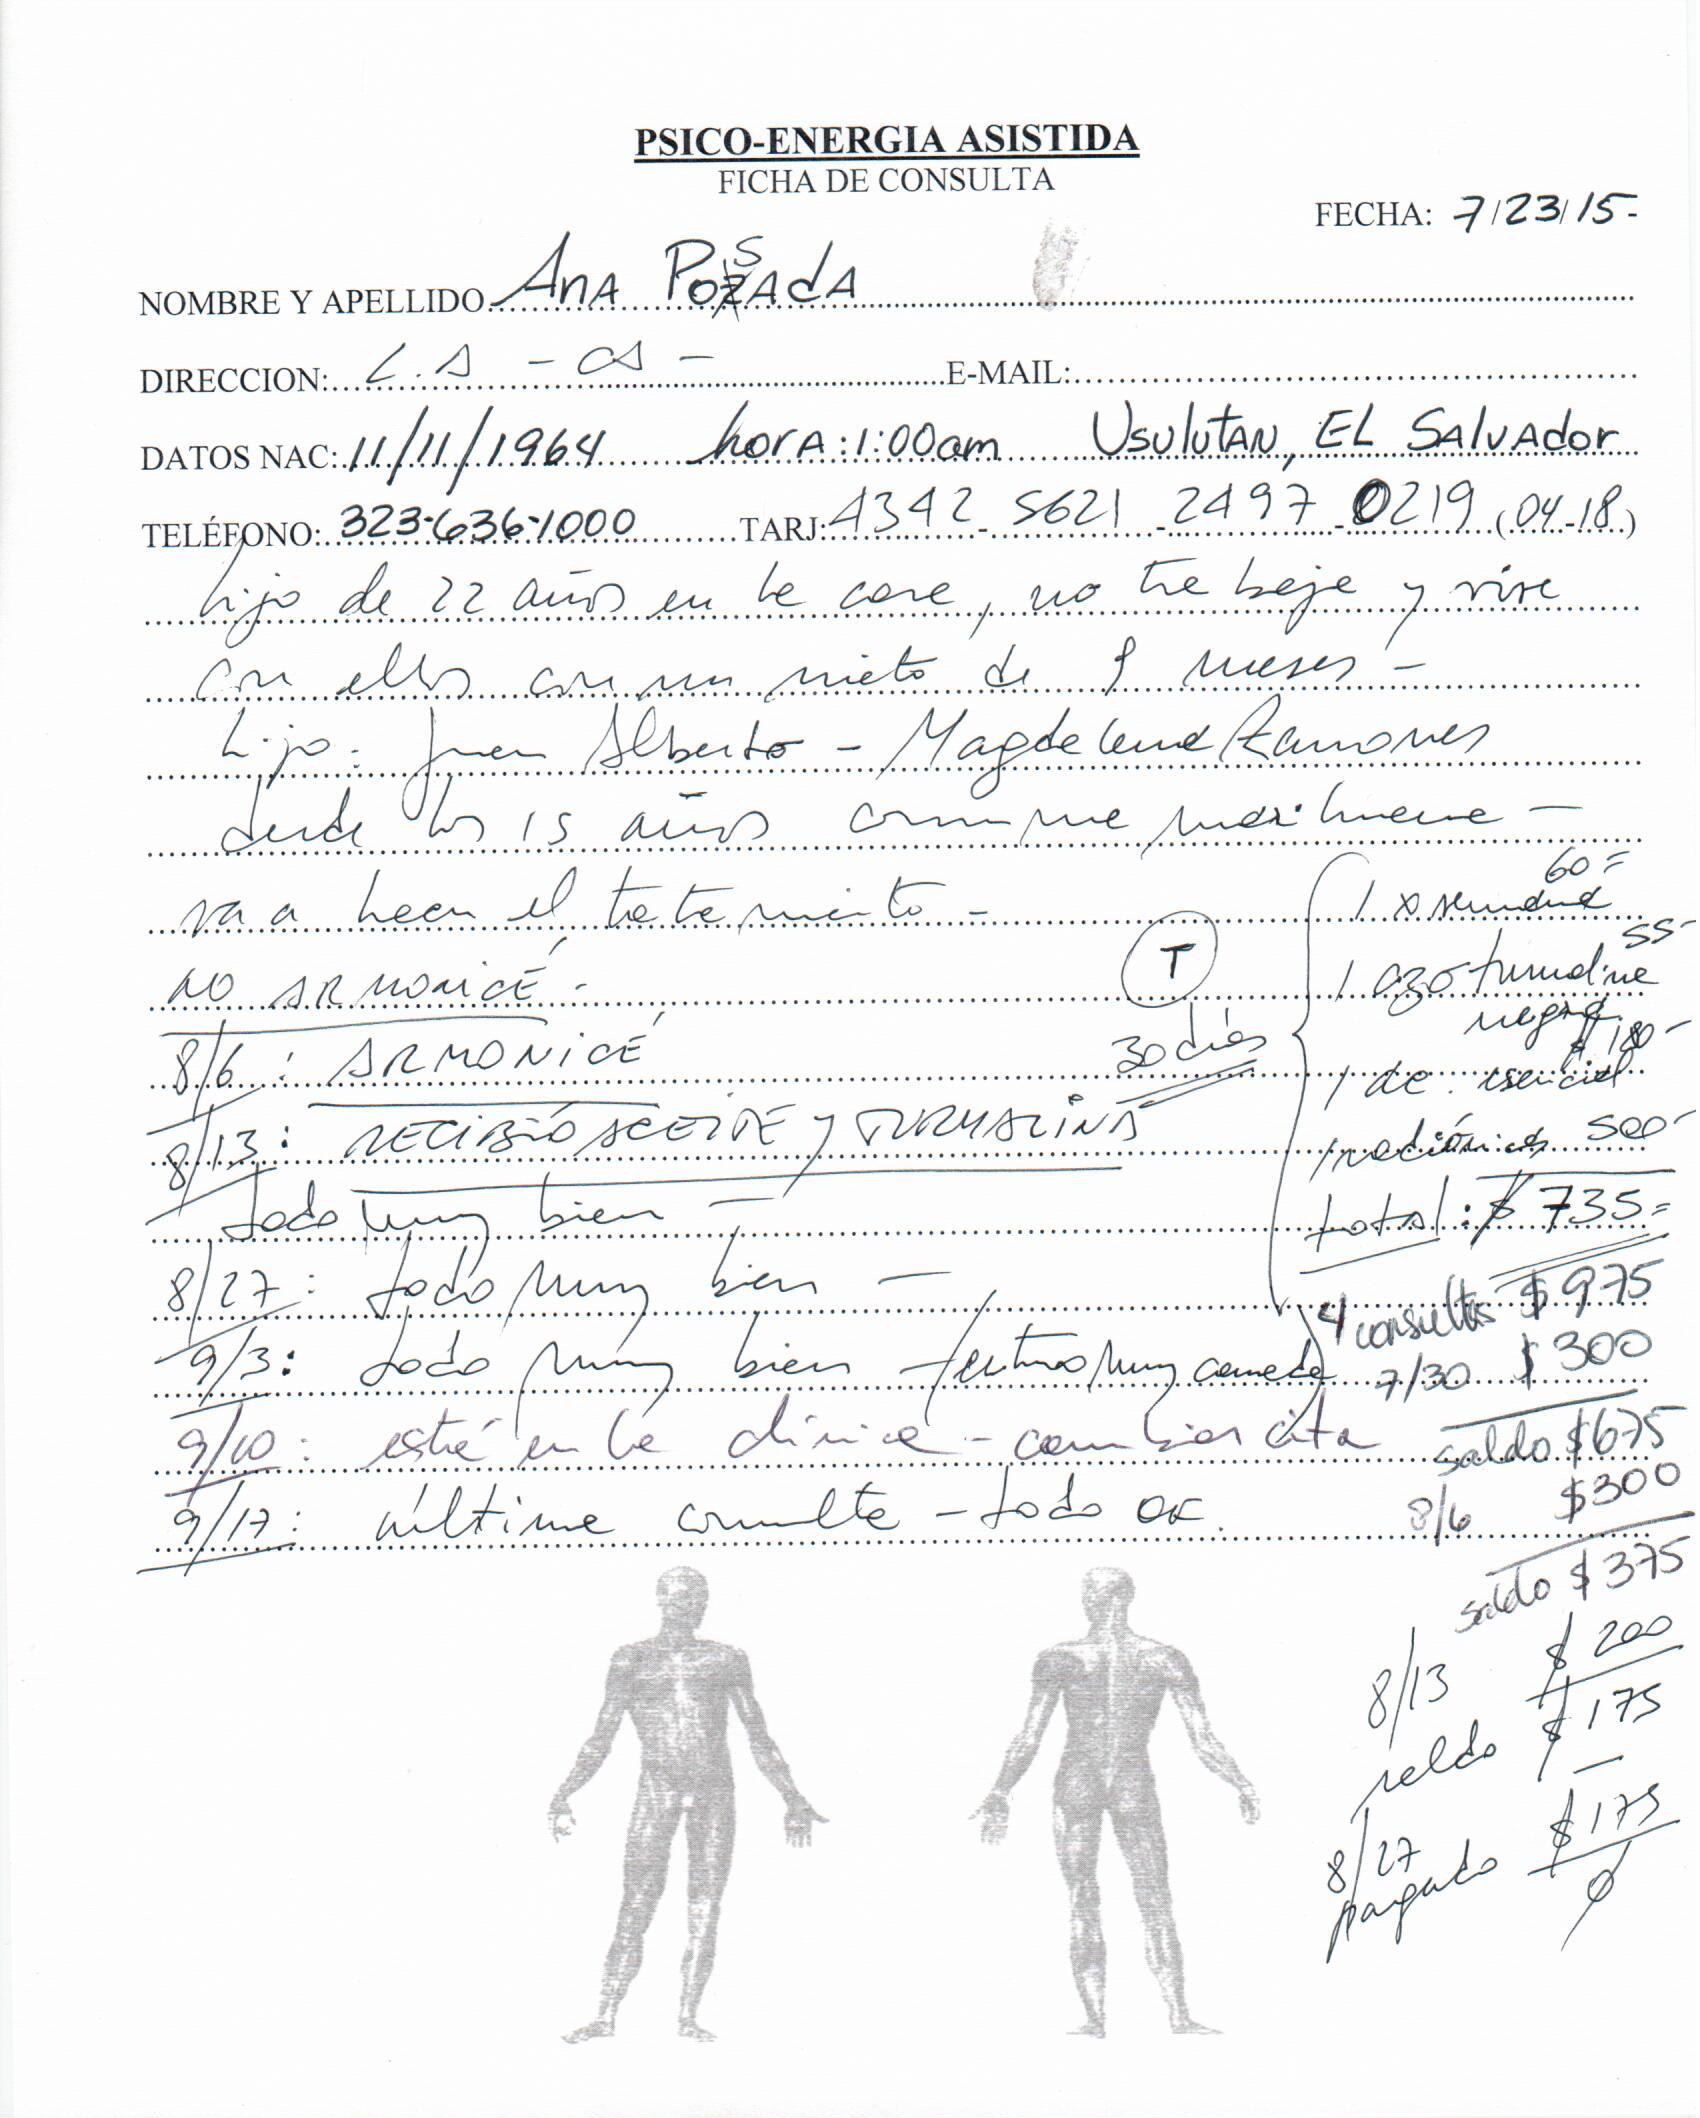 PSICO-ENERGIA ASISTIDA
FICHA DE CONSULTA
FECHA: 7/23/15-
NOMBRE Y APELLIDO Ana Posada
DIRECCION: L.A - CA - E-MAIL:
DATOS NAC: 11/11/1964 hora: 1:00am Usulutan, El Salvador
TELÉFONO: 323-636-1000 TARJ: 4342-5621-2497-0219 (04-18)
hijo de 22 años en la casa, no trabaja y vive
con ellos con un nieto de 9 meses -
hijo: Juan Alberto - Magdalena Ramones
desde los 15 años consume marihuana -
va a hacer el tratamiento -
NO ARMONICÉ -
8/6: ARMONICÉ
8/13: RECIBIÓ ACEITE y TURMALINA
todo muy bien -
8/27: todo muy bien -
9/3: todo muy bien -
9/10: está en la clínica - cambiar cita
9/17: última consulta - todo ok.
T
30 días
60=
1 x semana
55-
1 turmalina
negra
$ 180-
1 de esencial
500-
total: $ 735=
4 consultas $975
7/30 $300
saldo $675
8/6 $300
saldo $375
8/13 $ 200
saldo $ 175
-
8/27 $ 175
pagado 0